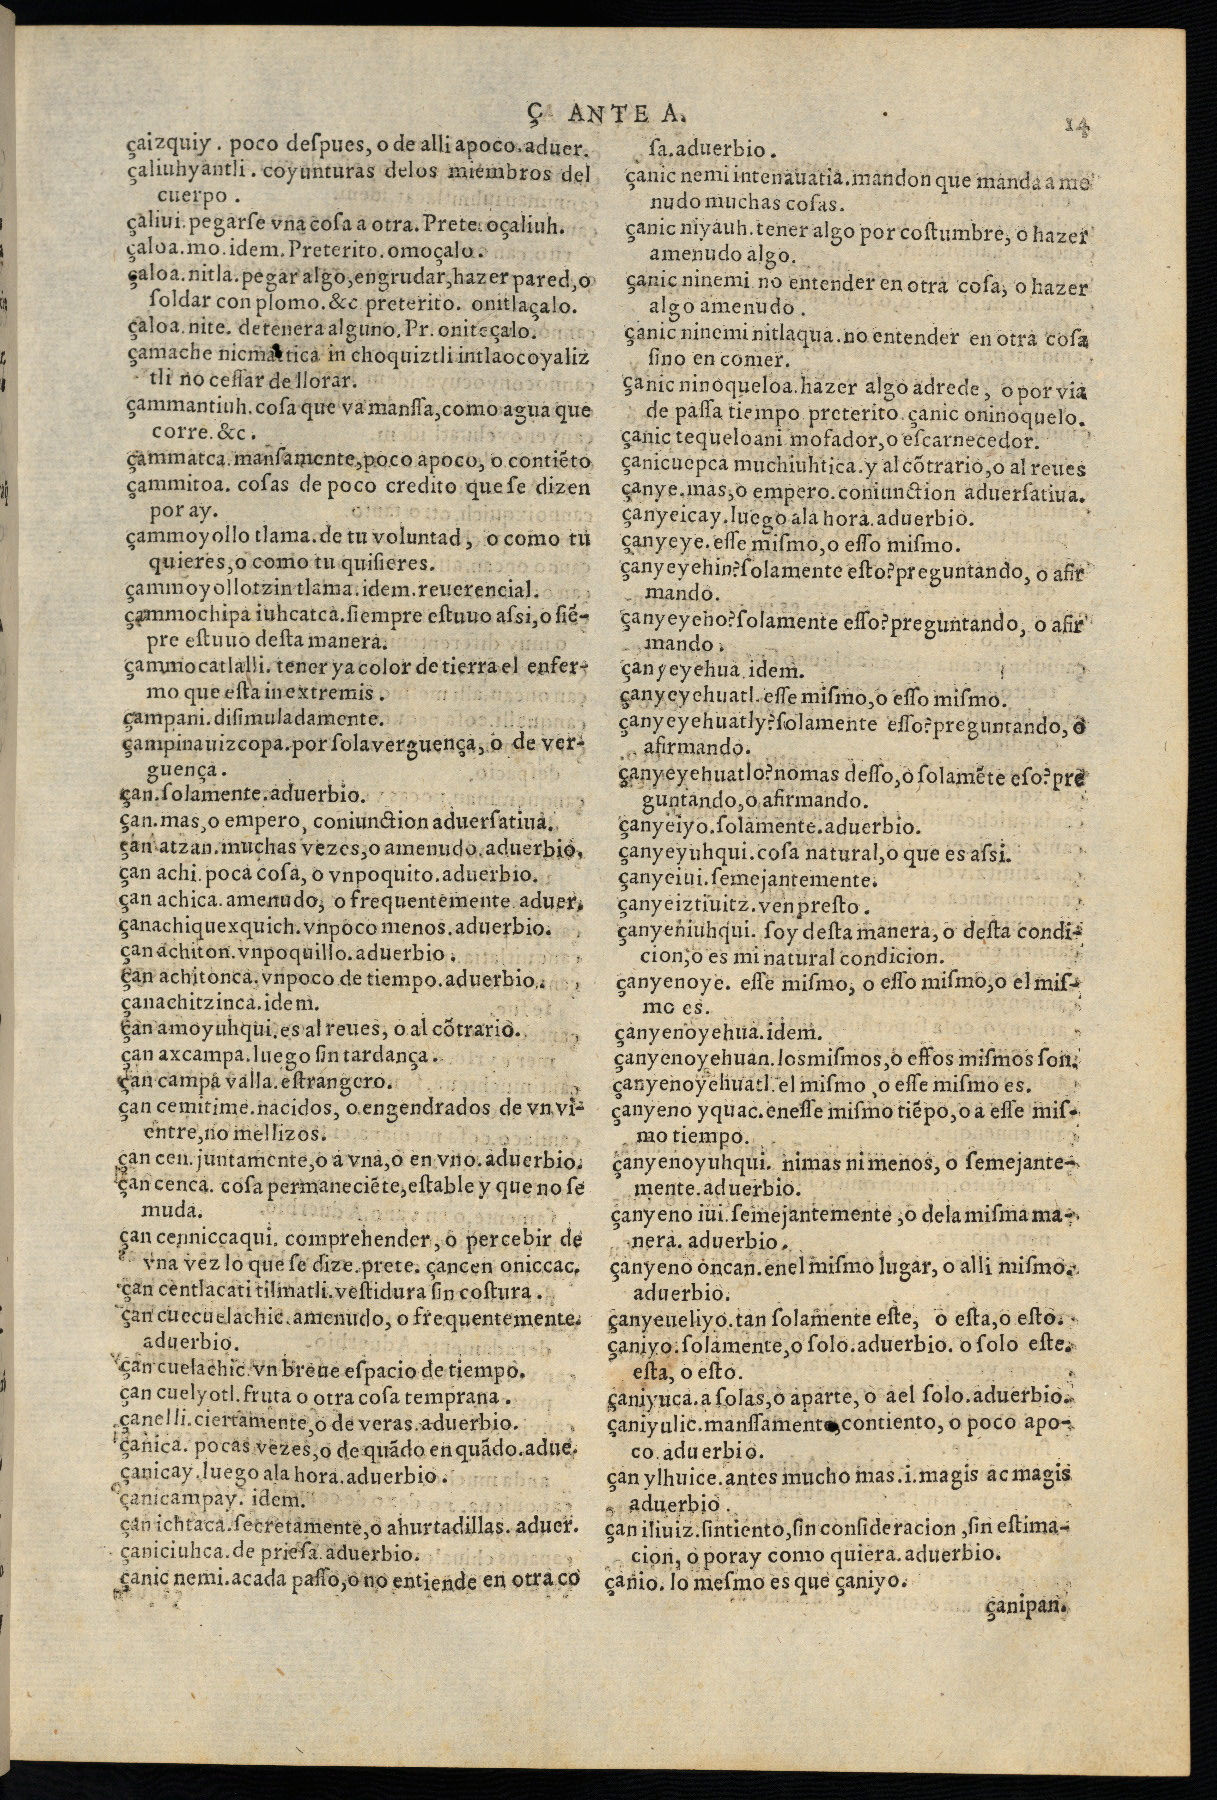 Ç ANTE A.
14
çaizquiy . poco deſpues, o de alli apoco.aduer.
çaliuhyantli . coyunturas delos miembros del
cuerpo .
çaliui.pegarſe vna coſa a otra.Prete.oçaliuh.
çaloa.mo.idem.Preterito.omoçalo.
çaloa.nitla.pegar algo,engrudar,hazer pared,o
ſoldar con plomo.&c preterito. onitlaçalo.
çaloa.nite. detener a alguno.Pr.oniteçalo.
çamache nicmattica in choquiztli intlaocoyaliz
tli no ceſſar de llorar.
çammantiuh.coſa que va manſſa,como agua que
corre.&c.
çammatca.manſamente,poco apoco, o contiẽto
çammitoa. coſas de poco credito que ſe dizen
por ay.
çammoyollo tlama.de tu voluntad, o como tu
quieres,o como tu quiſieres.
çammoyollotzin tlama.idem.reuerencial.
çammochipa iuhcatca.ſiempre eſtuuo aſsi,o ſiẽ-
pre eſtuuo deſta manera.
çammocatlalli.tener ya color de tierra el enfer-
mo que eſta in extremis .
çampani.diſimuladamente.
çampinauizcopa.por ſola verguença, o de ver-
guença .
çan.ſolamente.aduerbio.
çan.mas,o empero, coniunction aduerſatiua.
çan atzan.muchas vezes,o amenudo.aduerbio.
çan achi.poca coſa, o vnpoquito.aduerbio.
çan achica.amenudo, o frequentemente aduer.
çanachiquexquich.vnpoco menos.aduerbio.
çan achiton.vnpoquillo.aduerbio .
çan achitonca.vnpoco de tiempo.aduerbio.
çanachitzinca.idem.
çan amoyuhqui.es al reues, o al cõtrario.
çan axcampa.luego ſin tardança .
çan campa valla.eſtrangero.
çan cemitime.nacidos, o engendrados de vn vi-
entre,no mellizos.
çan cen.juntamente,o a vna,o en vno.aduerbio.
çan cenca. coſa permaneciẽte,eſtable y que no ſe
muda.
çan cenniccaqui. comprehender, o percebir de
vna vez lo que ſe dize.prete. çancen oniccac.
çan centlacati tilmatli.veſtidura ſin coſtura .
çan cuecuelachic.amenudo, o frequentemente.
aduerbio.
çan cuelachic.vn breue eſpacio de tiempo.
çan cuelyotl.fruta o otra coſa temprana .
çanelli.ciertamente,o de veras.aduerbio.
çanica. pocas vezes,o de quãdo en quãdo.adue.
çanicay.luego ala hora.aduerbio .
çanicampay. idem.
çan ichtaca.ſecretamente,o ahurtadillas.aduer.
çaniciuhca.de prieſa.aduerbio.
çanic nemi.acada paſſo,o no entiende en otra co
ſa.aduerbio .
çanic nemi intenauatia.mandon que manda a me
nudo muchas coſas.
çanic niyauh.tener algo por coſtumbre, o hazer
amenudo algo.
çanic ninemi no entender en otra coſa, o hazer
algo amenudo .
çanic ninemi nitlaqua.no entender en otra coſa
ſino en comer.
çanic ninoqueloa.hazer algo adrede , o por via
de paſſa tiempo preterito.çanic oninoquelo.
çanic tequeloani mofador,o eſcarnecedor.
çanicuepca muchiuhtica.y al cõtrario,o al reues
çanye.mas,o empero.coniunction aduerſatiua.
çanyeicay.luego ala hora.aduerbio.
çanyeye.eſſe miſmo,o eſſo miſmo.
çanyeyehin?ſolamente eſto?preguntando, o afir
mando.
çanyeyeho?ſolamente eſſo?preguntando, o afir
mando.
çanyeyehua.idem.
çanyeyehuatl.eſſe miſmo,o eſſo miſmo.
çanyeyehuatly?ſolamente eſſo?preguntando, o
afirmando.
çanyeyehuatlo?nomas deſſo,o ſolamẽte eſo?pre
guntando,o afirmando.
çanyeiyo.ſolamente.aduerbio.
çanyeyuhqui.coſa natural,o que es aſsi.
çanyeiui.ſemejantemente.
çanyeiztiuitz.ven preſto .
çanyeniuhqui. ſoy deſta manera, o deſta condi-
cion,o es mi natural condicion.
çanyenoye. eſſe miſmo, o eſſo miſmo,o el miſ-
mo es.
çanyenoyehua.idem.
çanyenoyehuan.los miſmos,o eſſos miſmos ſon.
çanyenoyehuatl.el miſmo ,o eſſe miſmo es.
çanyeno yquac.eneſſe miſmo tiẽpo,o a eſſe miſ-
mo tiempo.
çanyenoyuhqui. nimas nimenos, o ſemejante-
mente.aduerbio.
çanyeno iui.ſemejantemente ,o dela miſma ma-
nera. aduerbio .
çanyeno oncan.enel miſmo lugar, o alli miſmo.
aduerbio.
çanyeueliyo.tan ſolamente eſte, o eſta,o eſto.
çaniyo.ſolamente,o ſolo.aduerbio. o ſolo eſte.
eſta, o eſto.
çaniyuca.a ſolas,o aparte, o ael ſolo.aduerbio.
çaniyulic.manſſamente,contiento, o poco apo-
co.aduerbio.
çan ylhuice.antes mucho mas.i.magis ac magis
aduerbio .
çan iliuiz.ſintiento,ſin conſideracion ,ſin eſtima-
cion, o poray como quiera.aduerbio.
çanio. lo meſmo es que çaniyo.
çanipan.